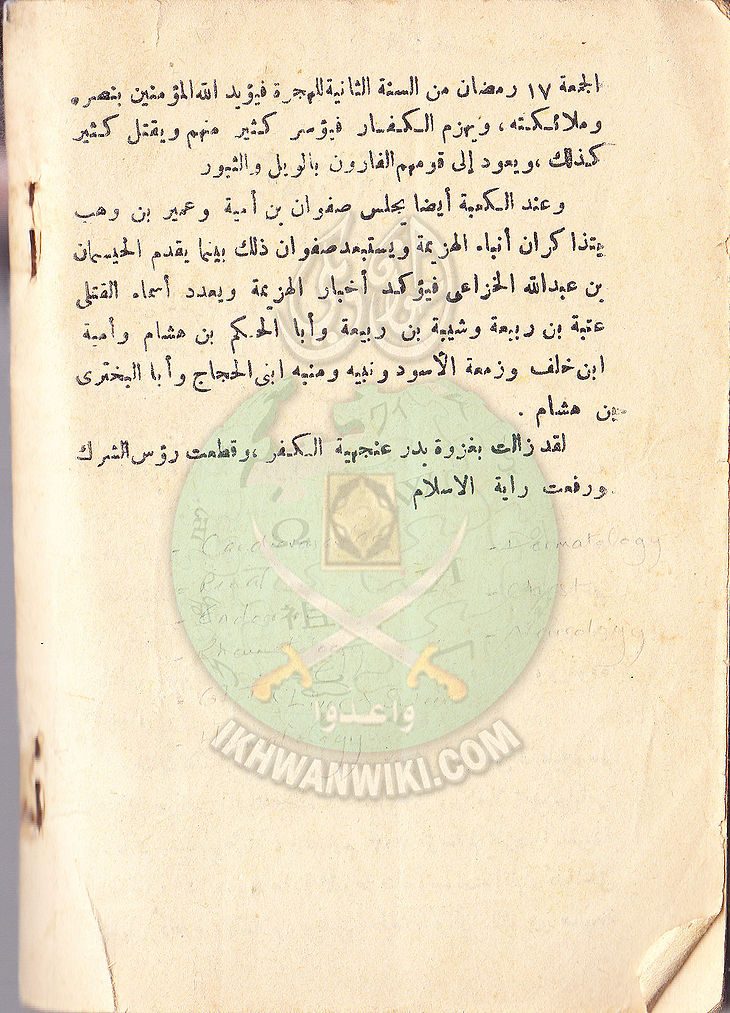 الجمعة ١٧ رمضان من السنة الثانية للهجرة فيؤيد الله المؤمنين بنصره
وملائكته، ويهزم الكفار فيؤسر كثير منهم ويقتل كثير
كذلك، ويعود إلى قومهم الفارون بالويل والثبور
وعند الكعبة أيضا يجلس صفوان بن أمية وعمير بن وهب
يتذاكران أنباء الهزيمة ويستبعد صفوان ذلك بينما يقدم الحيسمان
بن عبدالله الخزاعى فيؤكد أخبار الهزيمة ويعدد أسماء القتلى
عتبة بن ربيعة وشيبة بن ربيعة وأبا الحكم بن هشام وأمية
ابن خلف وزمعة الأسود ونبيه ومنبه ابنى الحجاج وأبا البخترى
بن هشام .
لقد زالت بغزوة بدر عنجهية الكفر، وقطعت رؤس الشرك
ورفعت راية الاسلام
- Dermatology
- Chest
- Neurology
واعدوا
IKHWANWIKI.COM